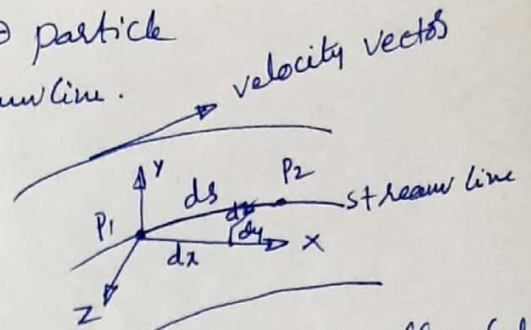 particle
line.
velocity vector
Y
ds
P2
P1
dy
stream line
dx
X
Z